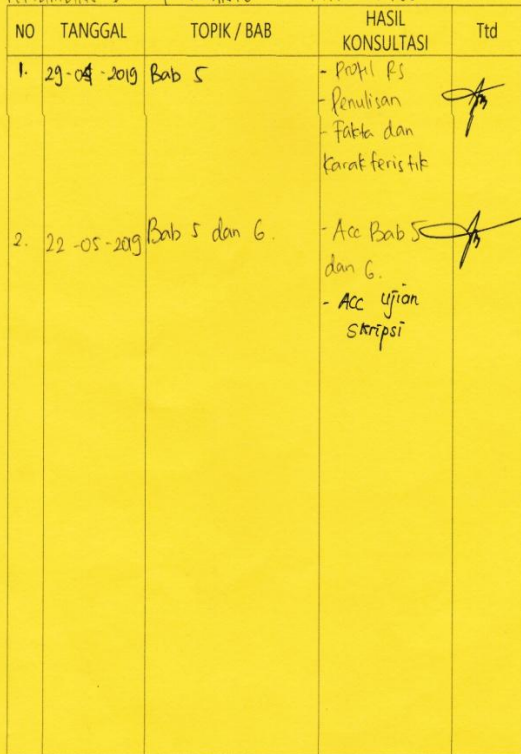 NO TANGGAL TOPIK / BAB HASIL KONSULTASI Ttd
1. 29-04-2019 Bab 5 - Profil RS
- Penulisan
- Fakta dan
Karakteristik
2. 22-05-2019 Bab 5 dan 6. - Acc Bab 5
dan 6.
- Acc Ujian
Skripsi